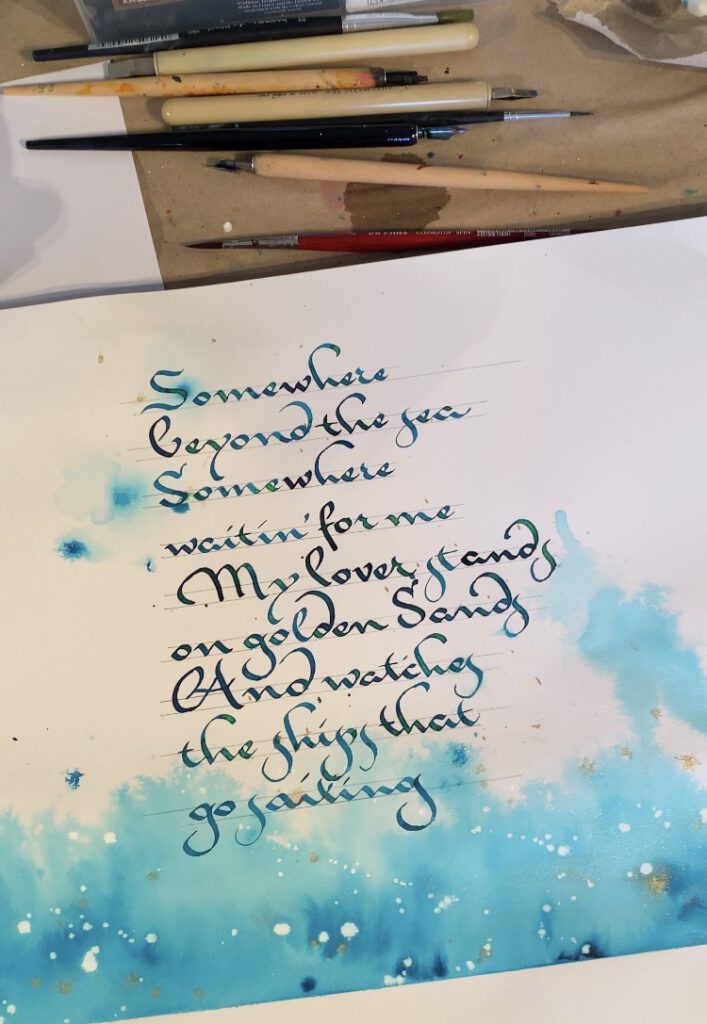 Somewhere
beyond the sea
Somewhere
waitin' for me
My lover stands
on golden Sands
And watches
the ships that
go sailing